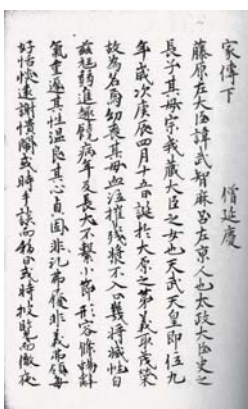 家傳下　僧延慶
藤原左大臣諱武智麻呂左京人也太政大臣史之
長子其母宗我蔵大臣之女也天武天皇即位九
年歳次庚辰四月十五日誕於大原之第義取茂榮
故為名焉幼喪其母血泣摧残漿不入口幾将滅性自
茲尫弱進趣饒病年及長大不繋小節形容條暢辭
氣重遅其性温良其心貞固非礼弗履非義弗領毎
好恬惔遠謝憒閙或時手談而移日或時披覧而徹夜